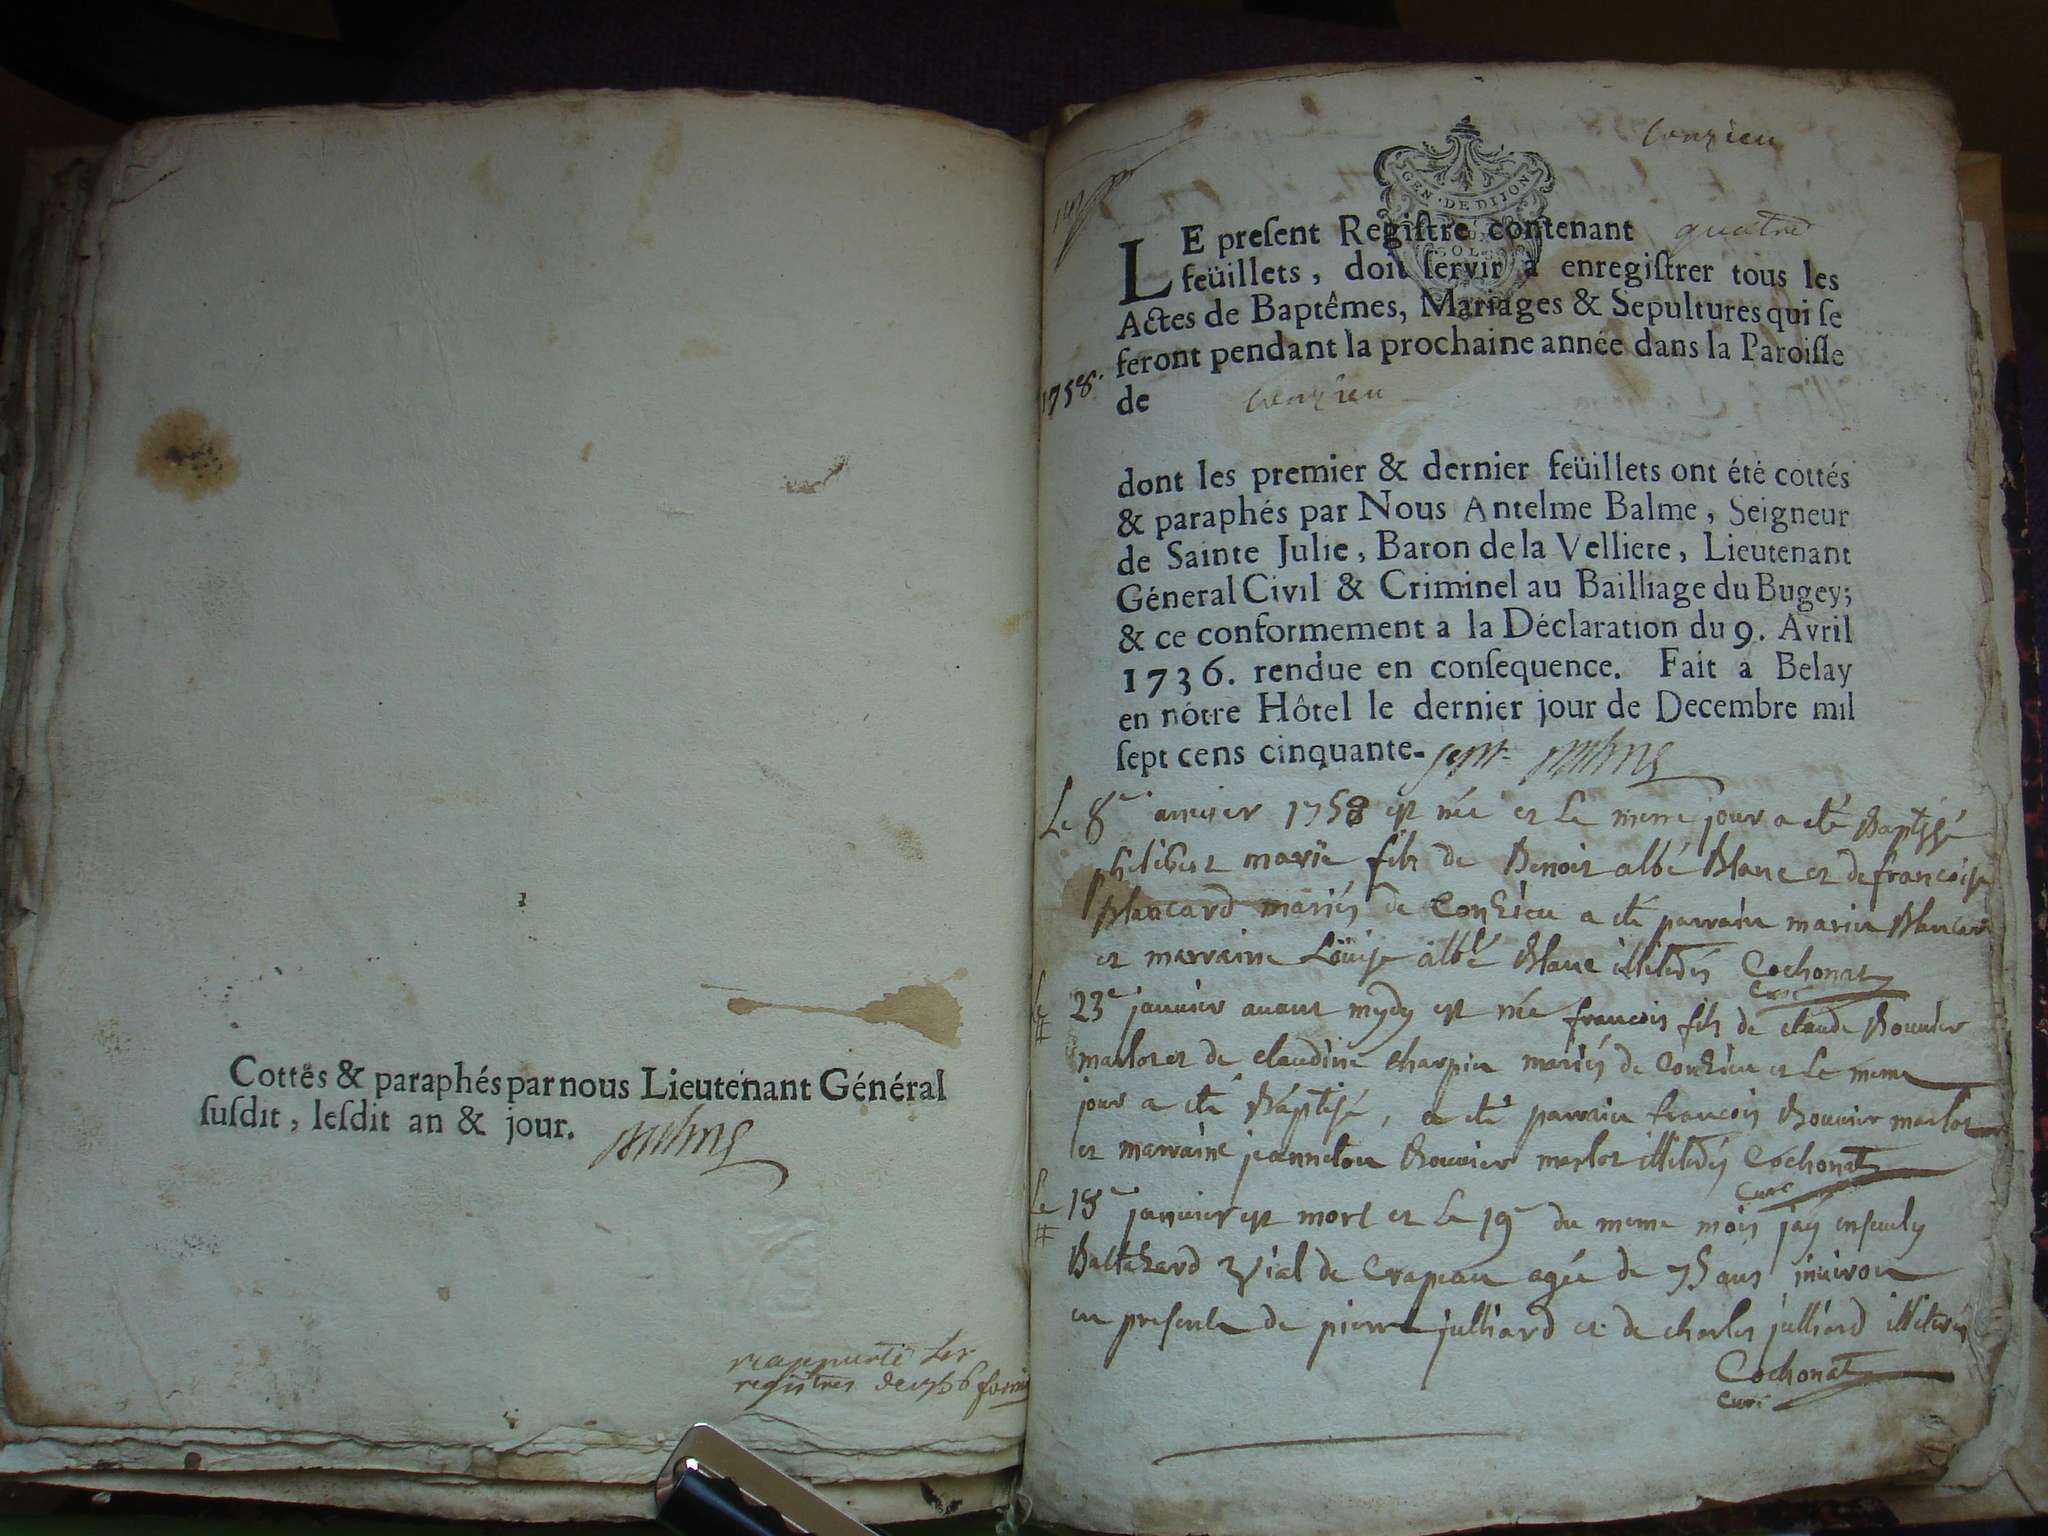 Cottés & paraphés par nous Lieutenant Général
ſuſdit, leſdit an & jour.
registres de 1756
Conzieu
GEN · DE DIJON
LE preſent Regiſtre contenant quatre
feüillets, doit ſervir à enregiſtrer tous les
Actes de Baptêmes, Mariages & Sepultures qui ſe
feront pendant la prochaine année dans la Paroiſſe
1758.
de Conzieu
dont les premier & dernier feüillets ont été cottés
& paraphés par Nous Antelme Balme, Seigneur
de Sainte Julie, Baron de la Velliere, Lieutenant
Géneral Civil & Criminel au Bailliage du Bugey;
& ce conformement à la Déclaration du 9. Avril
1736. rendue en conſequence. Fait à Belay
en nôtre Hôtel le dernier jour de Decembre mil
ſept cens cinquante-sept
Le 8e 1758 est née et Le meme jour a eté Baptisé
philibert marie fils de Benoit albé Blanc et de francoise
Blancard mariés de Conzieu a eté parrain marin Blancard
et marraine Loüise albé Blanc illiterés Cochonat
Curé
Le 23e janvier avant mydy est née francois fils de claude Bouvier
marlot et de claudine charpin mariés de Conzieu et Le meme
jour a eté Baptisé, a eté parrain francois Bouvier marlot
et marraine jeanneton Bouvier marlot illiterés Cochonat
Curé
Le 18e janvier est mort et Le 19e du meme mois j'ay ensevely
Baltazard Vial de Crapeau agée de 75 ans inviron
en presence de pierre julliard et de charles julliard illiterés
Cochonat
Curé